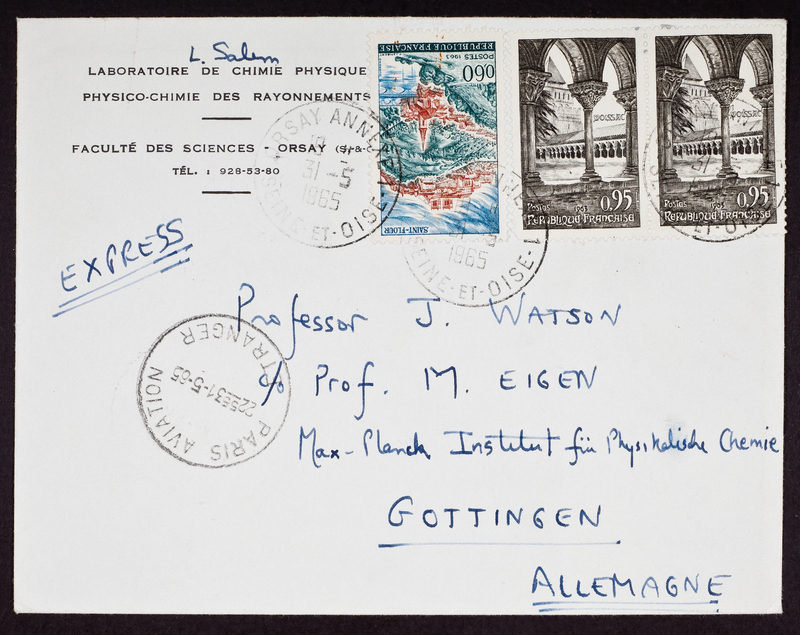 L. Salem
LABORATOIRE DE CHIMIE PHYSIQUE
PHYSICO-CHIMIE DES RAYONNEMENTS
FACULTÉ DES SCIENCES - ORSAY (S.-&-
TÉL. : 928-53-80
RÉPUBLIQUE FRANÇAISE
POSTES 1963
0,60
SAINT-FLOUR
MOISSAC
Postes
0,95
RÉPUBLIQUE FRANÇAISE
MOISSAC
Postes
0,95
RÉPUBLIQUE FRANÇAISE
ORSAY ANNEXE
31 -5
1965
SEINE-ET-OISE
1965
SEINE-ET-OISE
ET-OISE
EXPRESS
PARIS AVIATION
ETRANGER
31-5-65
Professor J. WATSON
c/o Prof. M. EIGEN
Max-Planck Institut für Physikalische Chemie
GOTTINGEN
ALLEMAGNE